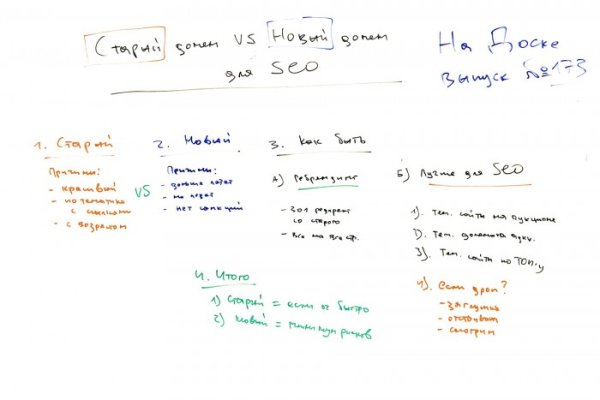 Старый домен VS Новый домен
для SEO
На Доске
выпуск №173
1. Старый
Причины:
- красивый
- по тематике
с ссылками
- с возрастом
VS
2. Новый
Причины:
- дольше
- не
- нет санкций
3. Как быть
А) Ребрендинг
- 301 редирект
со старого
- Все на все стр.
Б) Лучше для SEO
1). Тем. сайты на аукционе
2). Тем. домена аукц.
3). Тем. сайты по ТОП-у
4). Если дроп?
- заглушка
- отстаиваем
- смотрим
4. Итого
1) Старый = если ок быстро
2) Новый = минимум рисков